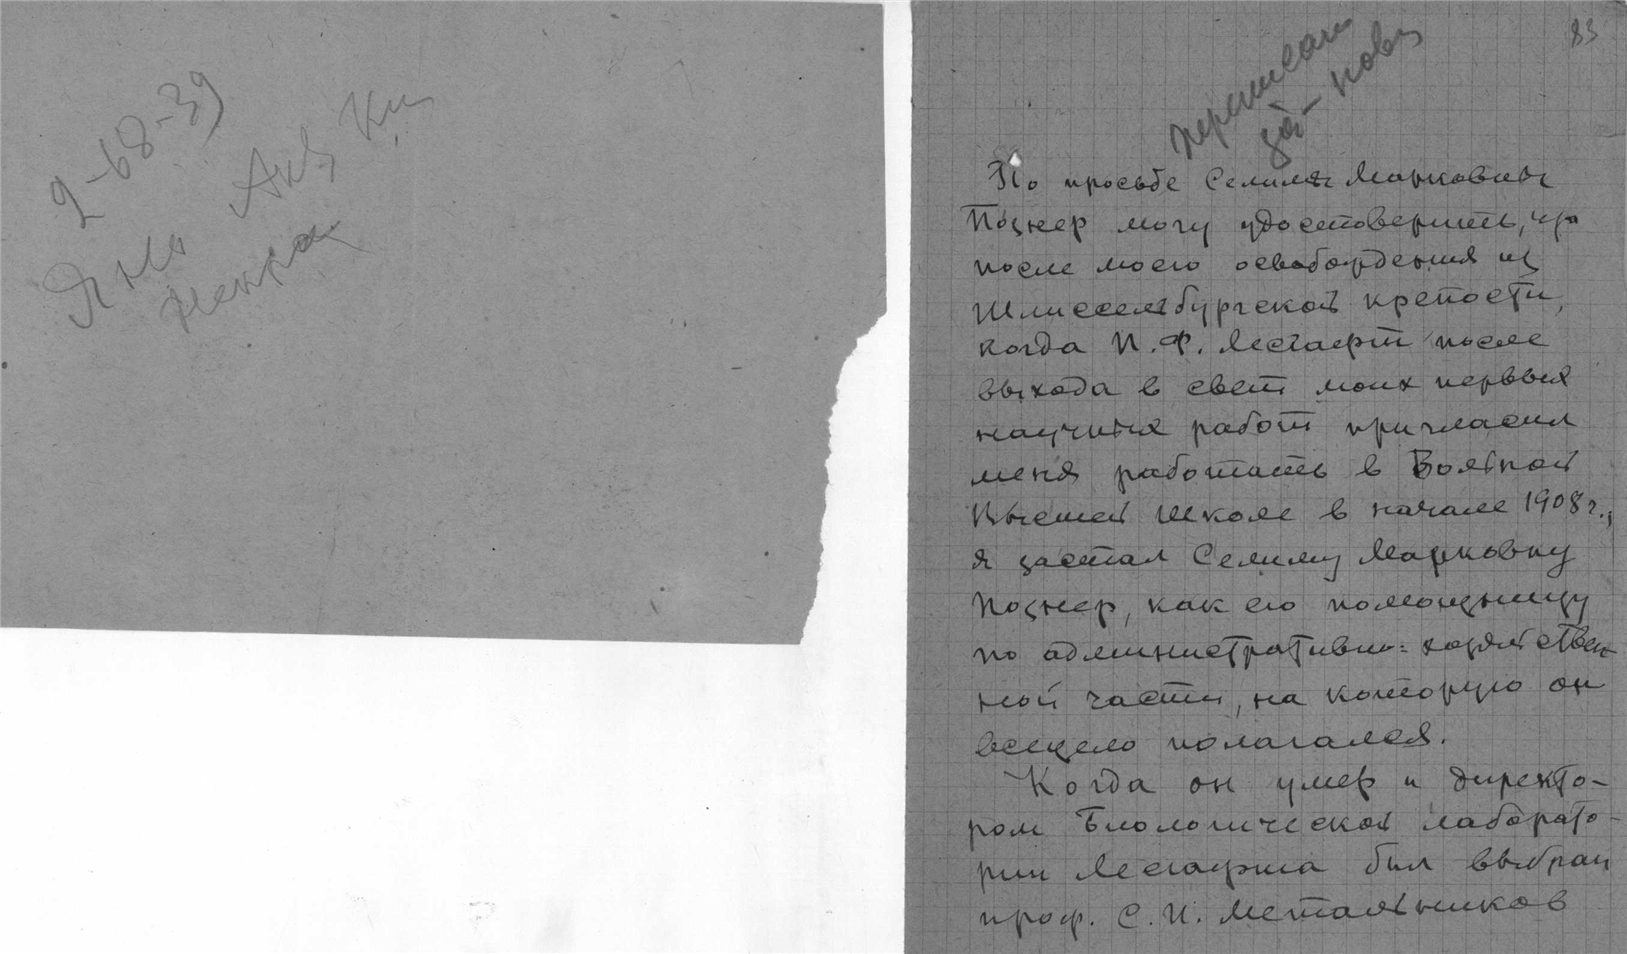 2-68-39
83
По просьбе Селимы Марковны
Познер могу удостоверить, что
после моего освобождения из
Шлиссельбургской крепости,
когда П. Ф. Лесгафт после
выхода в свет моих первых
научных работ пригласил
меня работать в Вольной
Высшей Школе в начале 1908 г.,
я застал Селиму Марковну
Познер, как его помощницу
по административно=хозяйствен
ной части, на которую он
всецело полагался.
Когда он умер и директо-
ром Биологической лаборато-
рии Лесгафта был выбран
проф. С. И. Метальников